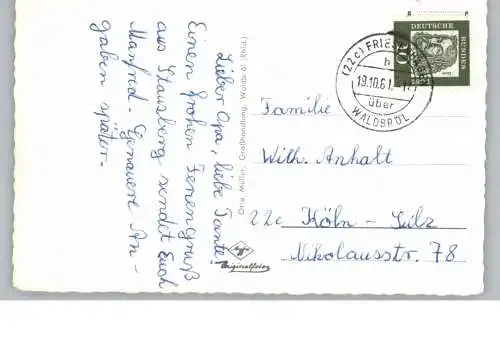 Lieber Opa, liebe Tante!
Einen frohen Feriengruß
aus Stausberg sendet Euch
Manfred. Genauere An-
gaben später.
Otto Müller, Großhandlung, Waldbröl (Rhld.)
Originalfoto
DEUTSCHE
BUNDES
(22c) FRIESEN
h
19.10.61.-17
über
WALDBRÖL
Familie
Wilh. Anhalt
22c Köln-Sülz
Nikolausstr. 78